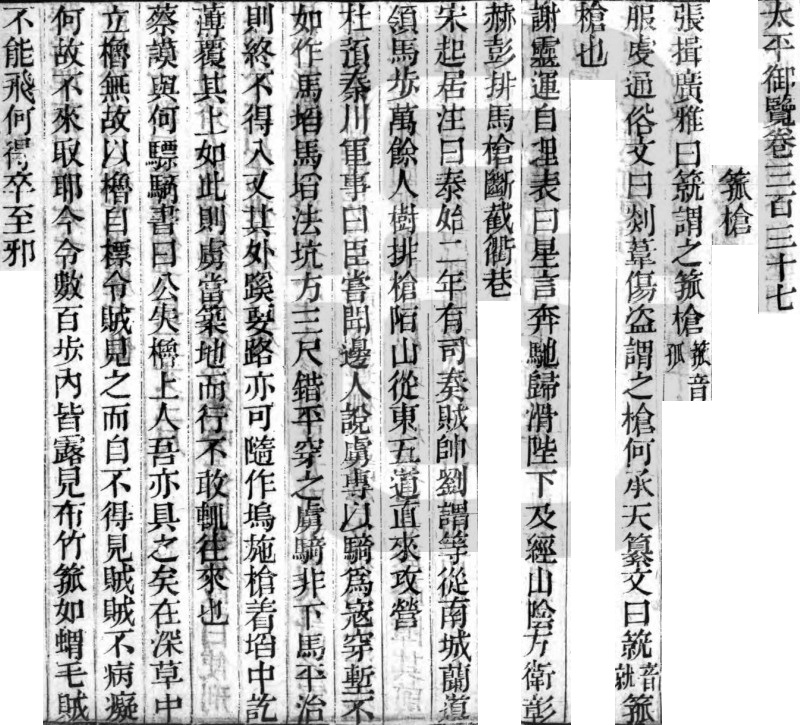 太平御覽卷三百三十七
箛槍
張揖廣雅曰䇯謂之箛槍箛音孤
服虔通俗文曰剡葦傷盗謂之槍何承天纂文曰䇯音就箛
槍也
謝靈運自理表曰星言奔馳歸滑陛下及經山陰方衛彭
赫彭排馬槍斷截衢巷
宋起居注曰泰始二年有司奏賊帥劉謂等從南城蘭道
領馬步萬餘人樹排槍陌山從東五道直來攻營
杜預奏川軍事曰臣嘗聞邊人說虜專以騎爲寇穿塹不
如作馬埳馬埳法坑方三尺錯平穿之虜騎非下馬平治
則終不得入又其外蹊要路亦可隨作塢施槍着埳中訖
薄覆其上如此則虜當築地而行不敢輒往來也
蔡謨與何驃騎書曰公失櫓上人吾亦具之矣在深草中
立櫓無故以櫓自標令賊見之而自不得見賊賊不病癡
何故不來取耶今令數百步內皆露見布竹箛如蝟毛賊
不能飛何得卒至邪